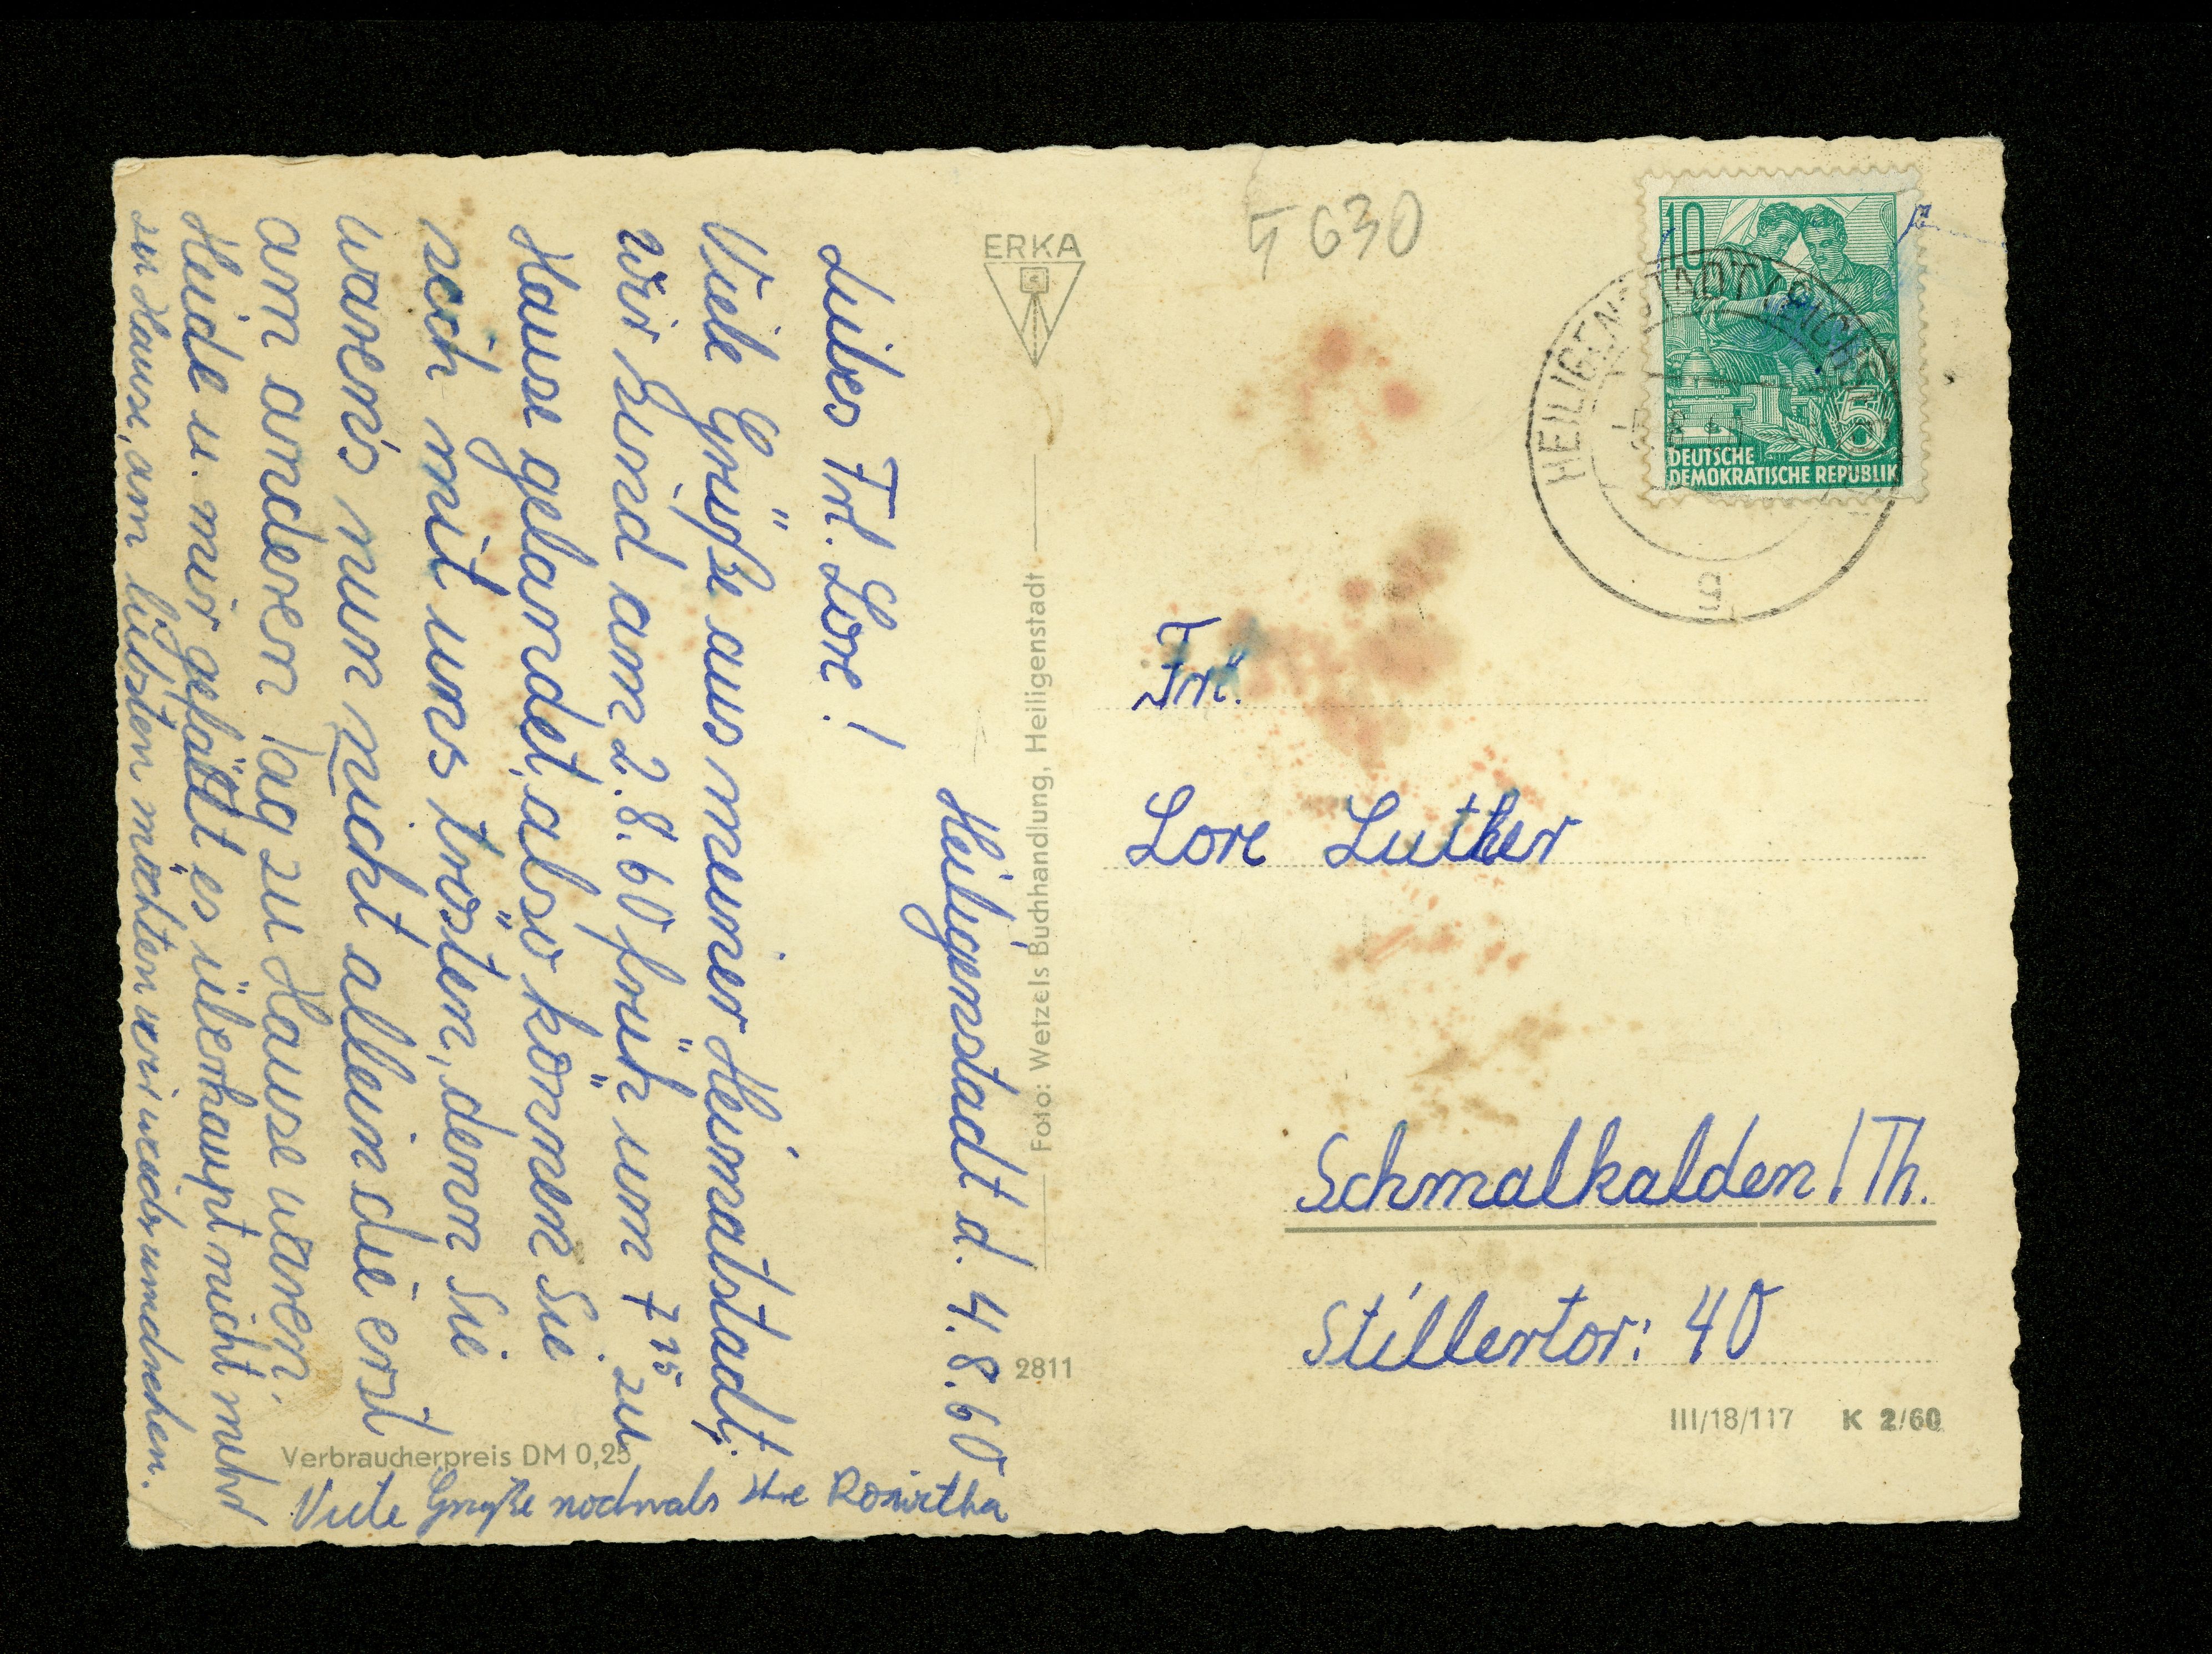 Heiligenstadt d. 4.8.60
Liebes Frl. Lore!
Viele Grüße aus meiner Heimatstadt.
Wir sind am 2.8.60 früh um 7 15 zu
Hause gelandet, also können Sie
sich mit uns trösten, denn Sie
waren's nun nicht allein die erst
am anderen Tag zu Hause waren.
Heide u. mir gefällt es überhaupt nicht mehr
zu Hause, am liebsten möchten wir wieder umdrehen.
Viele Grüße nochmals Ihre Roswitha
ERKA
Foto: Wetzels Buchhandlung, Heiligenstadt
2811
Verbraucherpreis DM 0,25
630
10
5
DEUTSCHE
DEMOKRATISCHE REPUBLIK
HEILIGENSTADT (EICHSF
g
Frl.
Lore Luther
Schmalkalden/Th.
Stillertor: 40
III/18/117 K 2/60